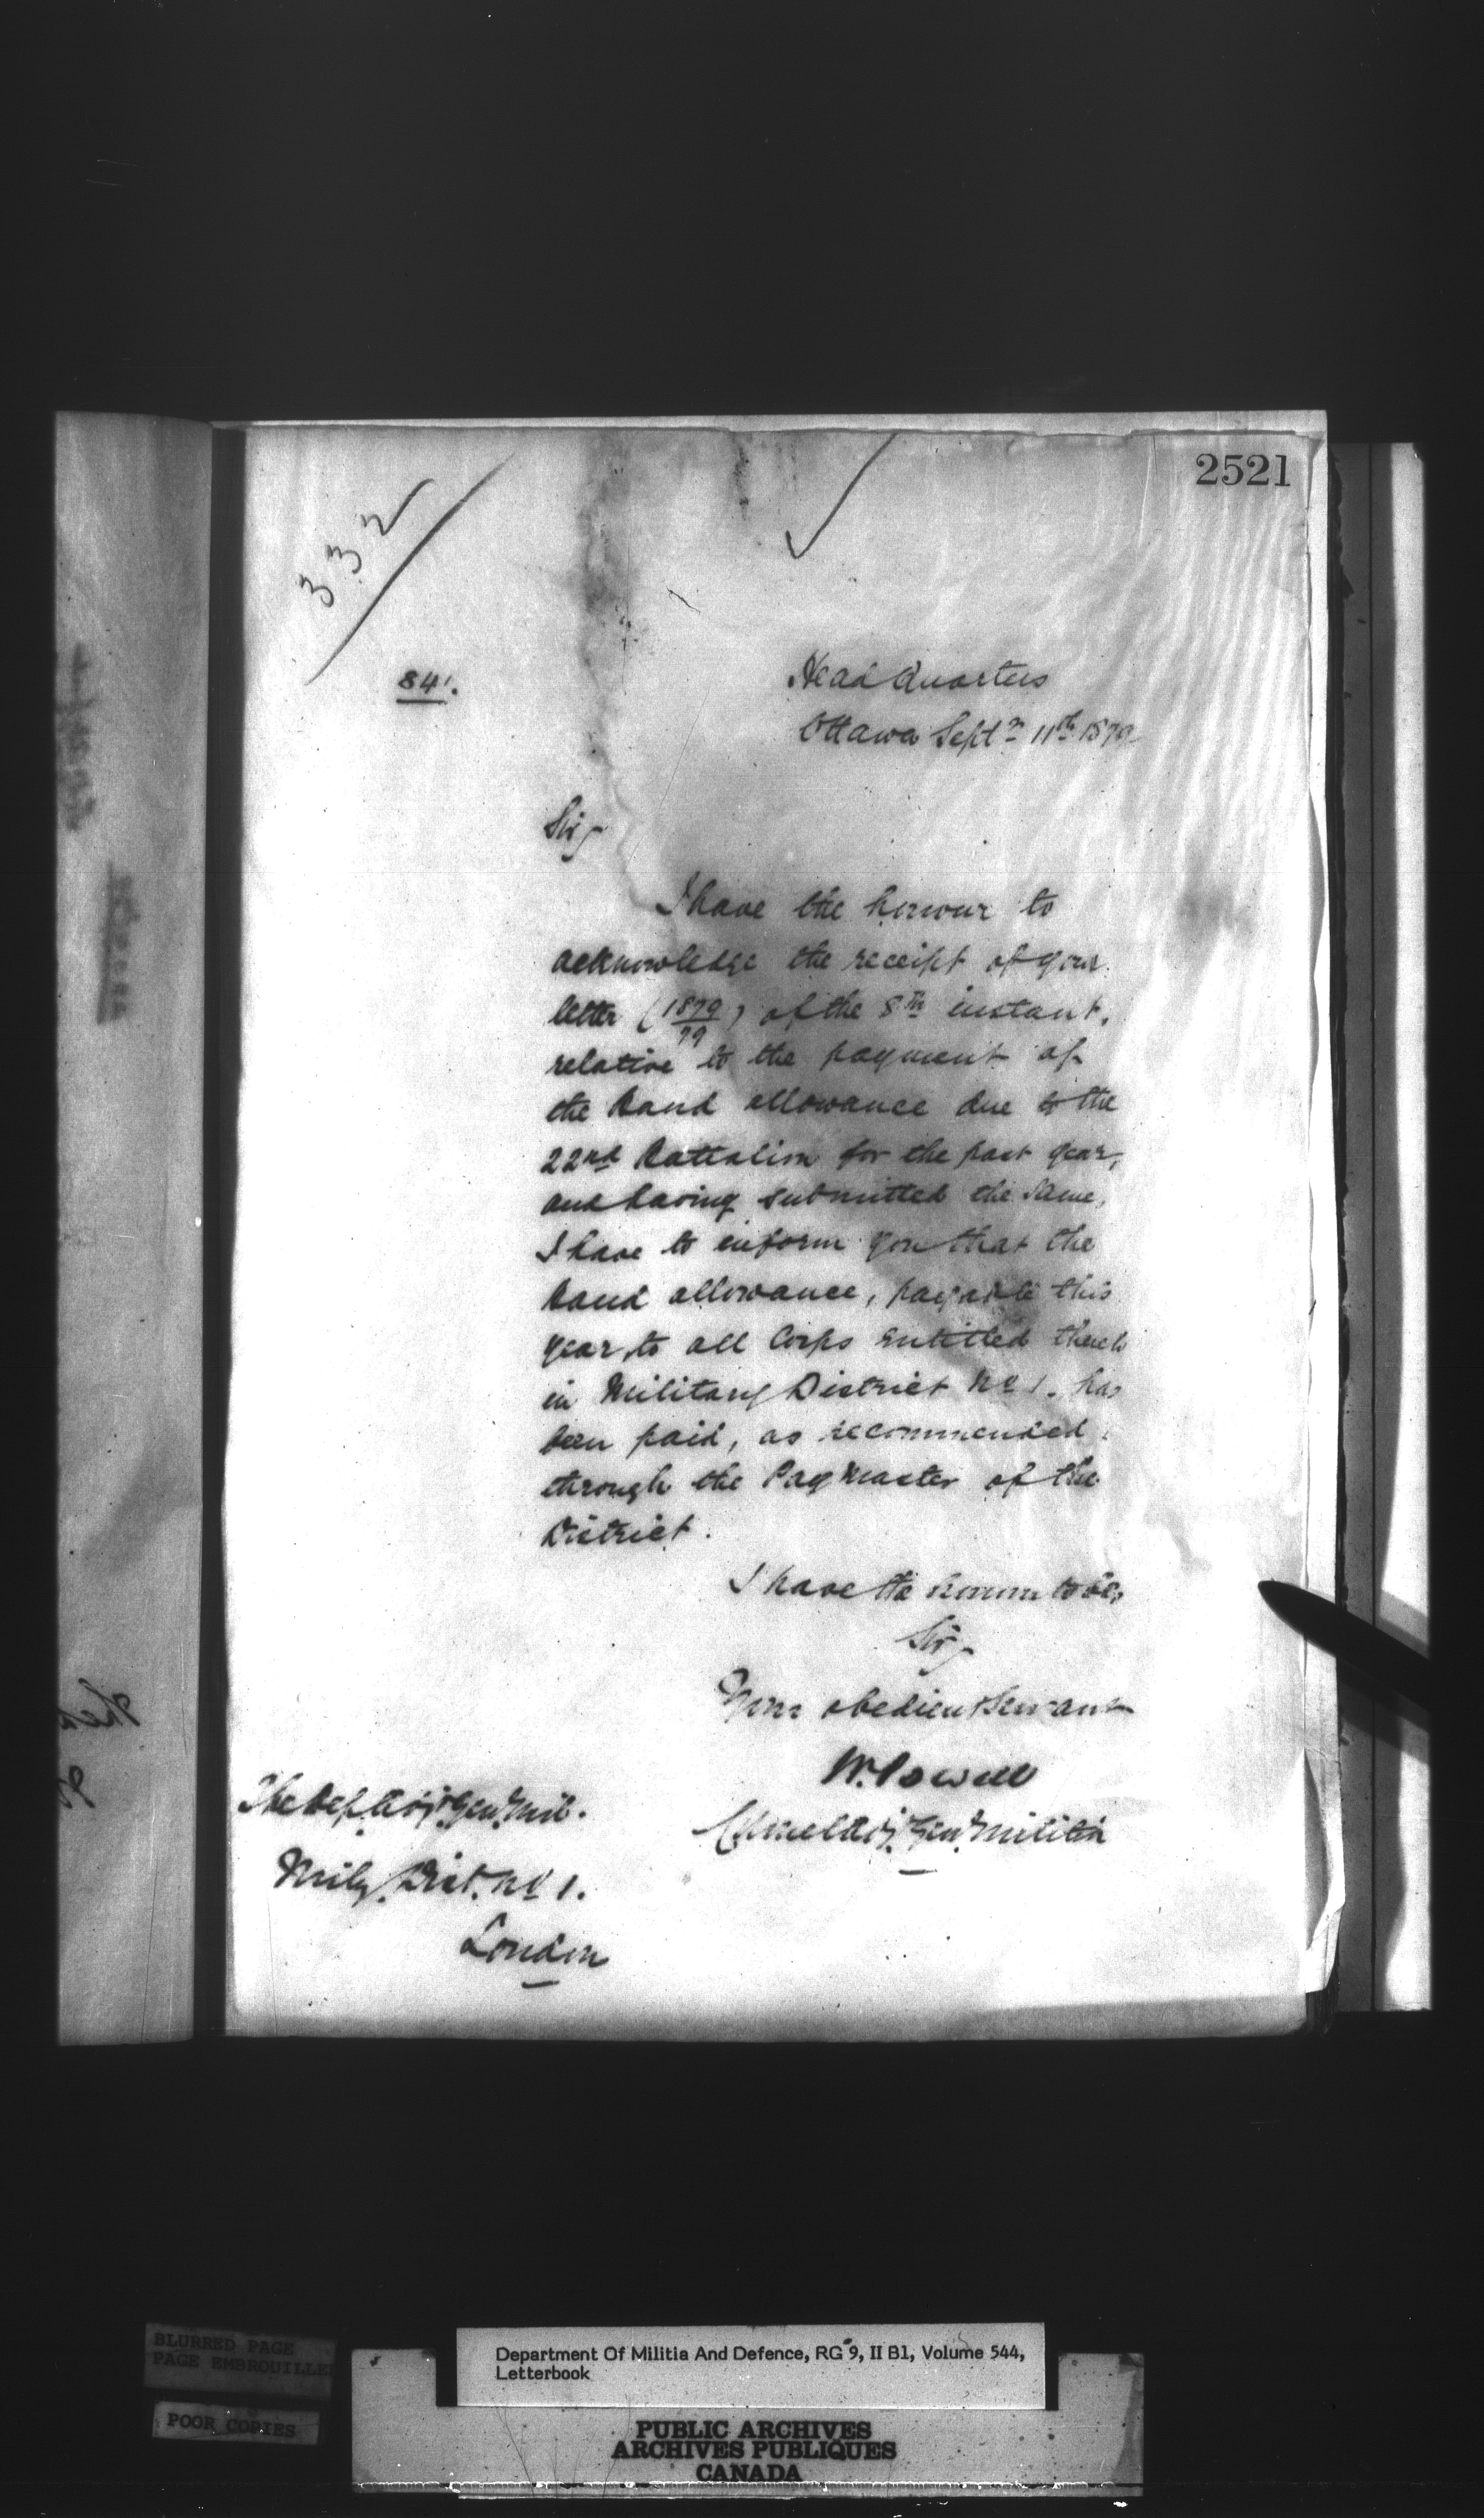 2521
332
841.
Head Quarters
Ottawa Septr 11th 1879
Sir,
I have the honour to
acknowledge the receipt of your
letter (1879/79) of the 8th instant,
relative to the payment of
the Band allowance due to the
22nd Battalion for the past year,
and having submitted the same,
I have to inform you that the
Band allowance, payable this
year, to all Corps entitled thereto
in Military District No 1. has
been paid, as recommended,
through the Pay Master of the
District.
I have the honour to be,
Sir,
Your obedient Servant
W. Powell
Colonel Adjt. Genl. Militia
The Dep. Adjt. Genl. Mil.
Mily. Dist. No 1.
London
BLURRED PAGE
PAGE EMBROUILLEE
POOR COPIES
Department Of Militia And Defence, RG 9, II B1, Volume 544,
Letterbook
PUBLIC ARCHIVES
ARCHIVES PUBLIQUES
CANADA